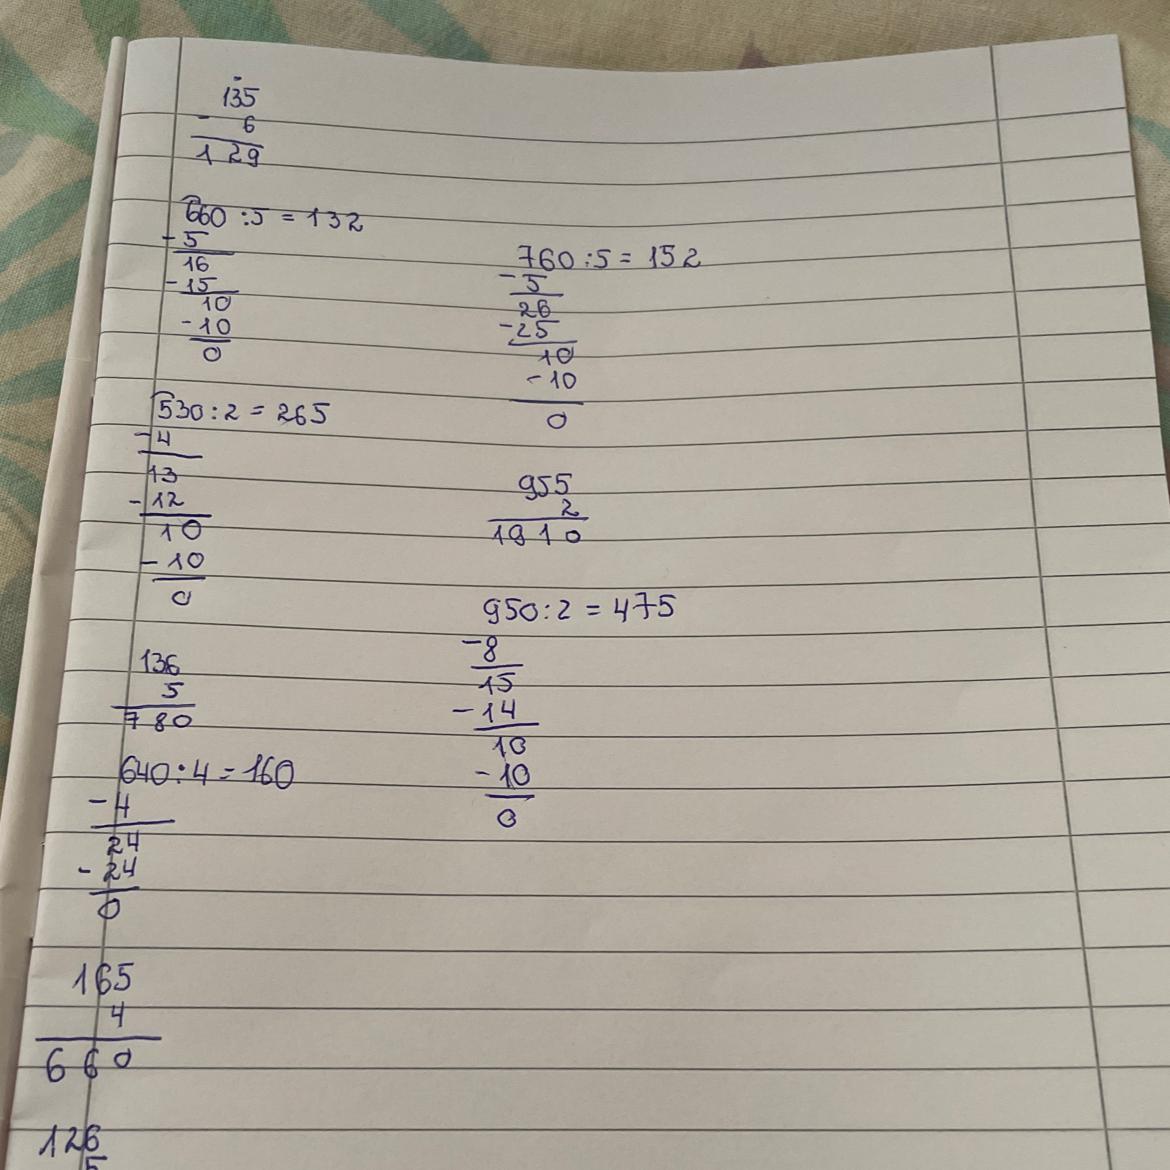 135
- 6
129
660 : 5 = 132
- 5
16
- 15
10
- 10
0
530 : 2 = 265
- 4
13
- 12
10
- 10
0
136
5
780
640 : 4 = 160
- 4
24
- 24
0
165
4
660
126
5
760 : 5 = 152
- 5
26
- 25
10
- 10
0
955
2
1910
950 : 2 = 475
- 8
15
- 14
10
- 10
0